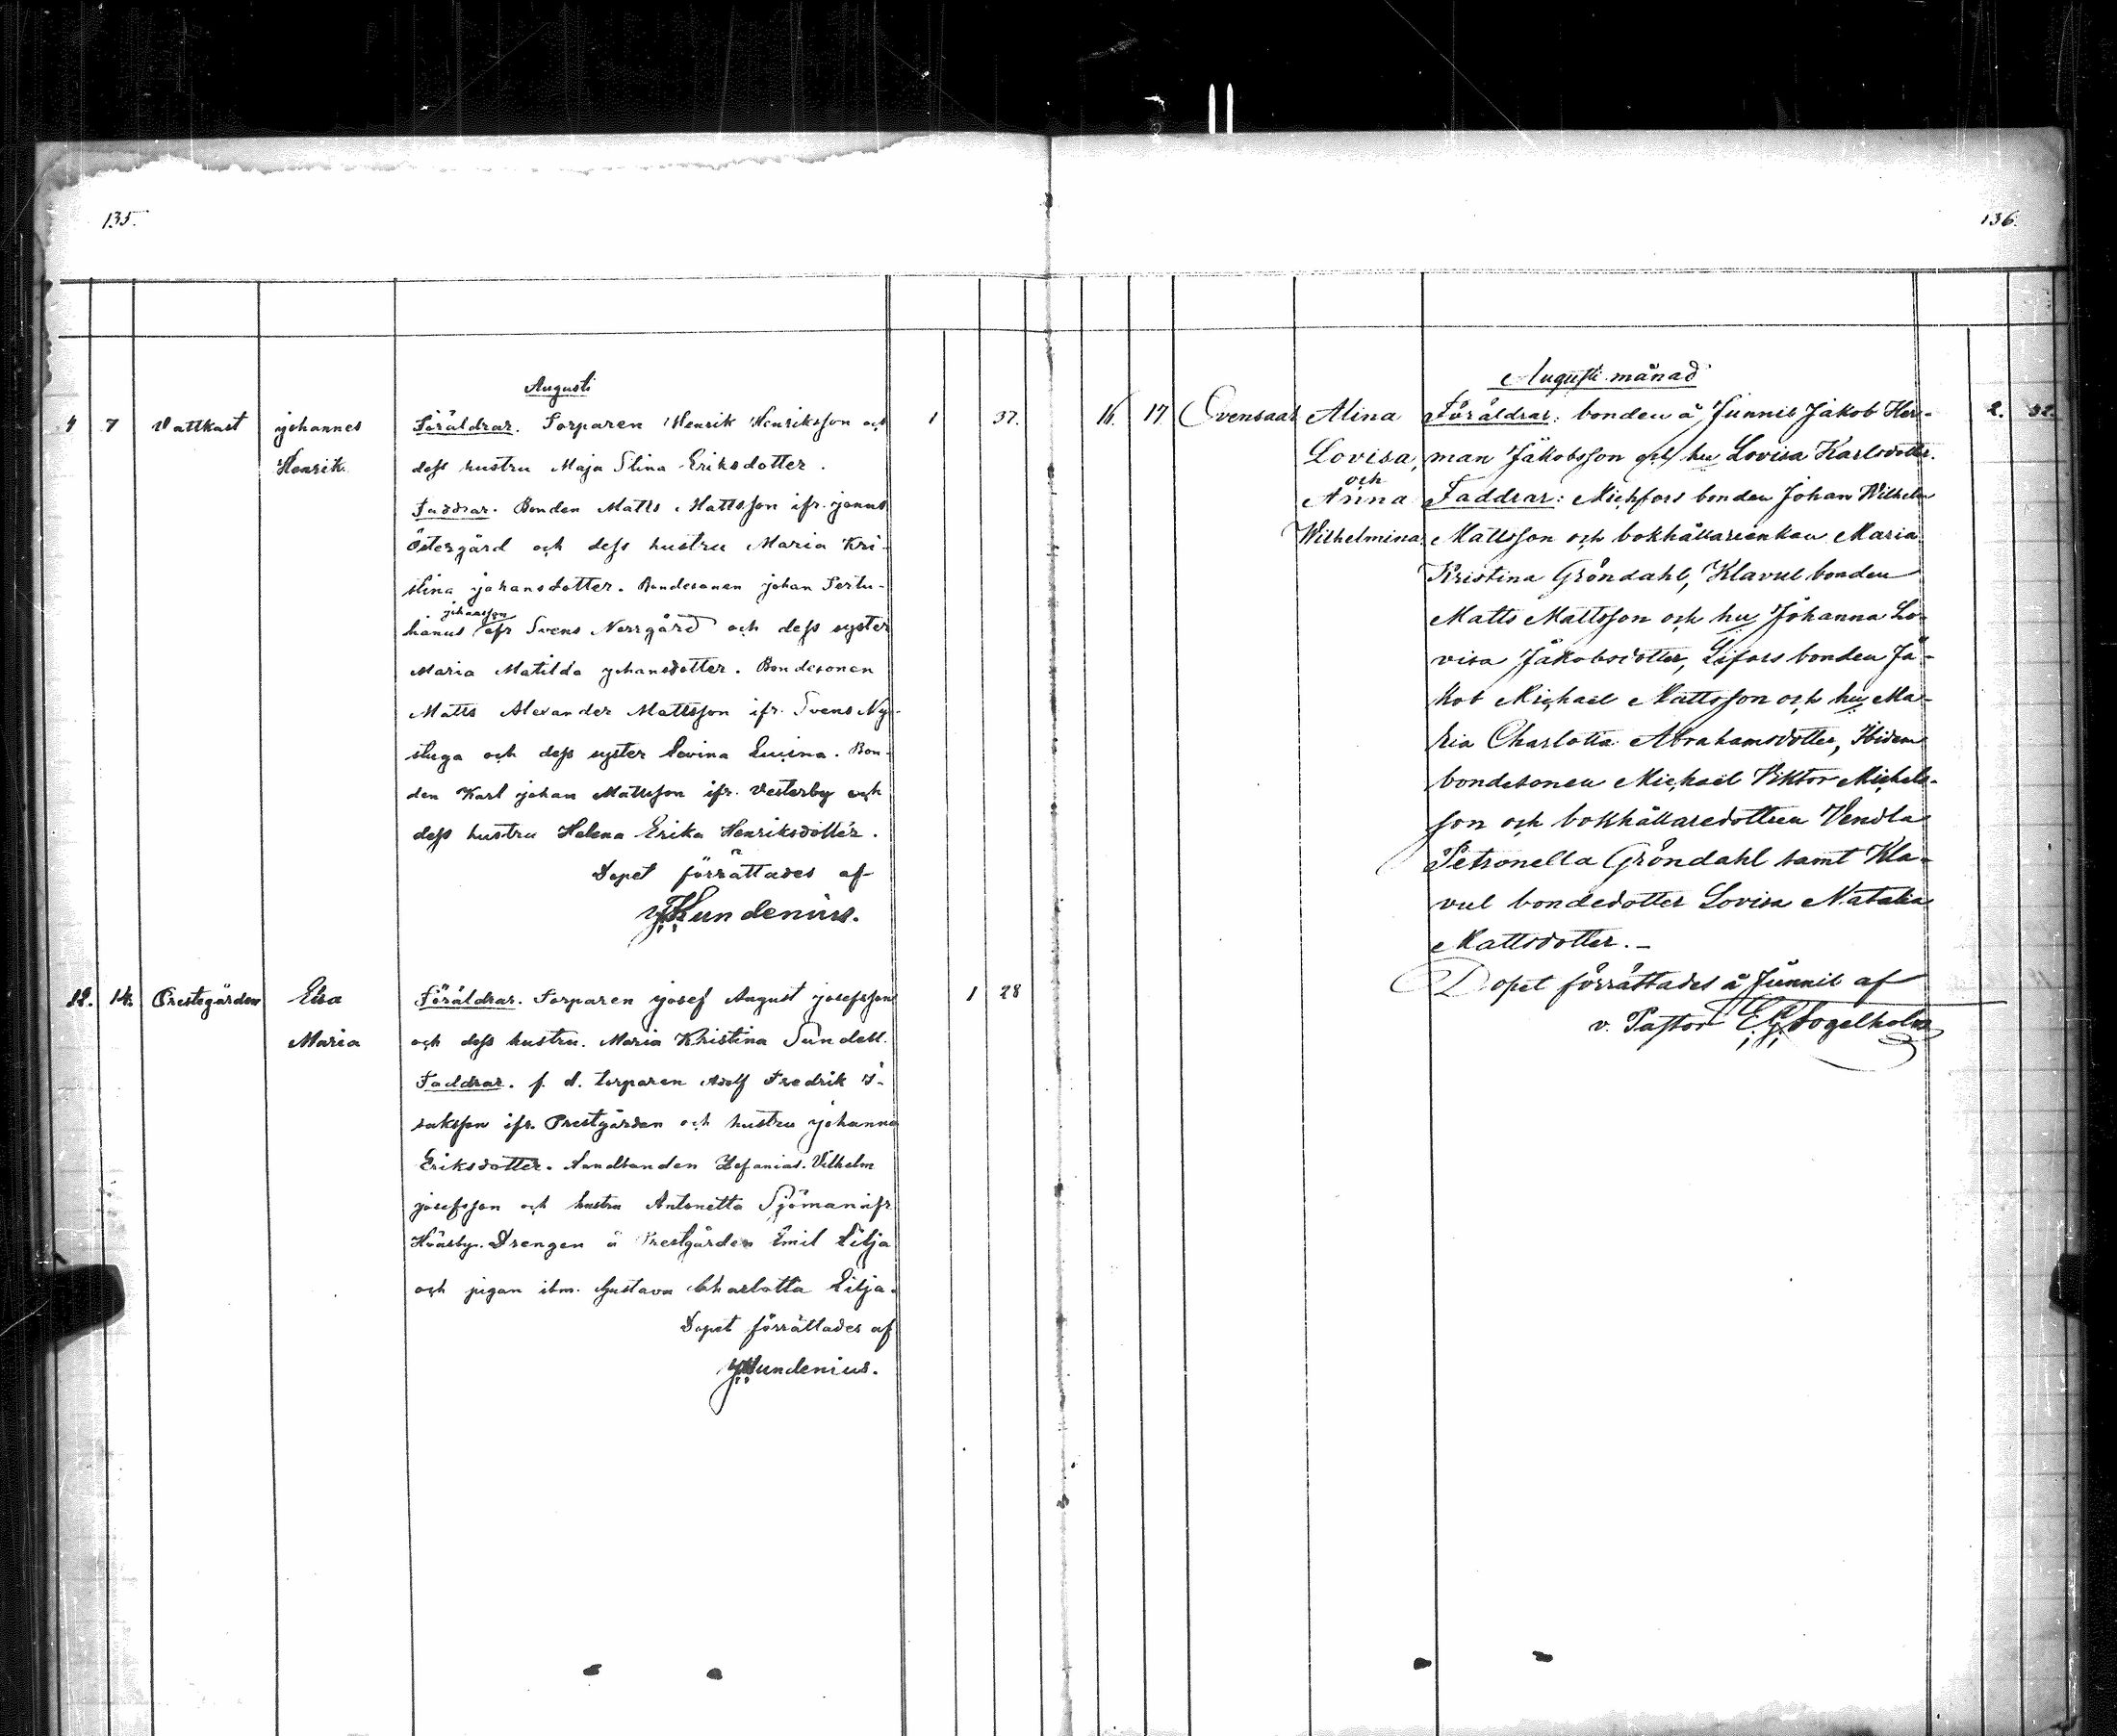 135.
Augusti
4 7 Vattkast Johannes Föräldrar. Torparen Henrik Henriksson och 1 37.
Henrik dess hustru Maja Stina Eriksdotter.
Faddrar. Bonden Matts Mattsson ifr. Jonus
Östergård och dess hustru Maria Kri-
stina Johansdotter. Bondesonen Johan Sertu-
johansson
hanus ifr Svens Norrgård och dess syster
Maria Matilda Johansdotter. Bondesonen
Matts Alexander Mattsson ifr. Svens Ny-
stuga och dess syster Sevina. Bon-
den Karl Johan Mattsson ifr. Vesterby och
dess hustru Helena Erika Henriksdotter.
Dopet förrättades af
Hundenius.
12. 14. Prestgården Elsa Föräldrar. Torparen Josef August Josefsson 1 28
Maria och dess hustru. Maria Kristina Sundell.
Faddrar. f. d. torparen Adolf Fredrik I-
saksson ifr. Prestgården och hustru Johanna
Eriksdotter. Landbonden Zefanias Vilhelm
Josefsson och hustru Antonetta Sjöman ifr
Hväsby. Drengen å Prestgården Emil Lilja
och pigan ibm. Gustava Charlotta Lilja.
Dopet förrättades af
Hundenius.
136.
Augusti månad
16. 17. Ovensaar Alina Föräldrar: bonden å Junnis Jakob Her- 2. 32.
Lovisa, man Jakobsson och hu Lovisa Karlsdotter.
och
Anna Faddrar: Michfors bonden Johan Wilhelm
Wilhelmina. Mattsson och bokhållareenkan Maria
Kristina Gröndahl, Klavul bonden
Matts Mattsson och hu Johanna Lo-
visa Jakobsdotter, Lifors bonden Ja-
kob Michael Mattsson och hu Ma-
ria Charlotta Abrahamsdotter, Ibidem
bondesonen Michael Viktor Michels-
son och bokhållaredottren Vendla
Petronella Gröndahl samt Kla-
vul bondedotter Lovisa Natalia
Mattsdotter.-
Dopet förrättades å Junnis af
v. Pastor Fogelholm